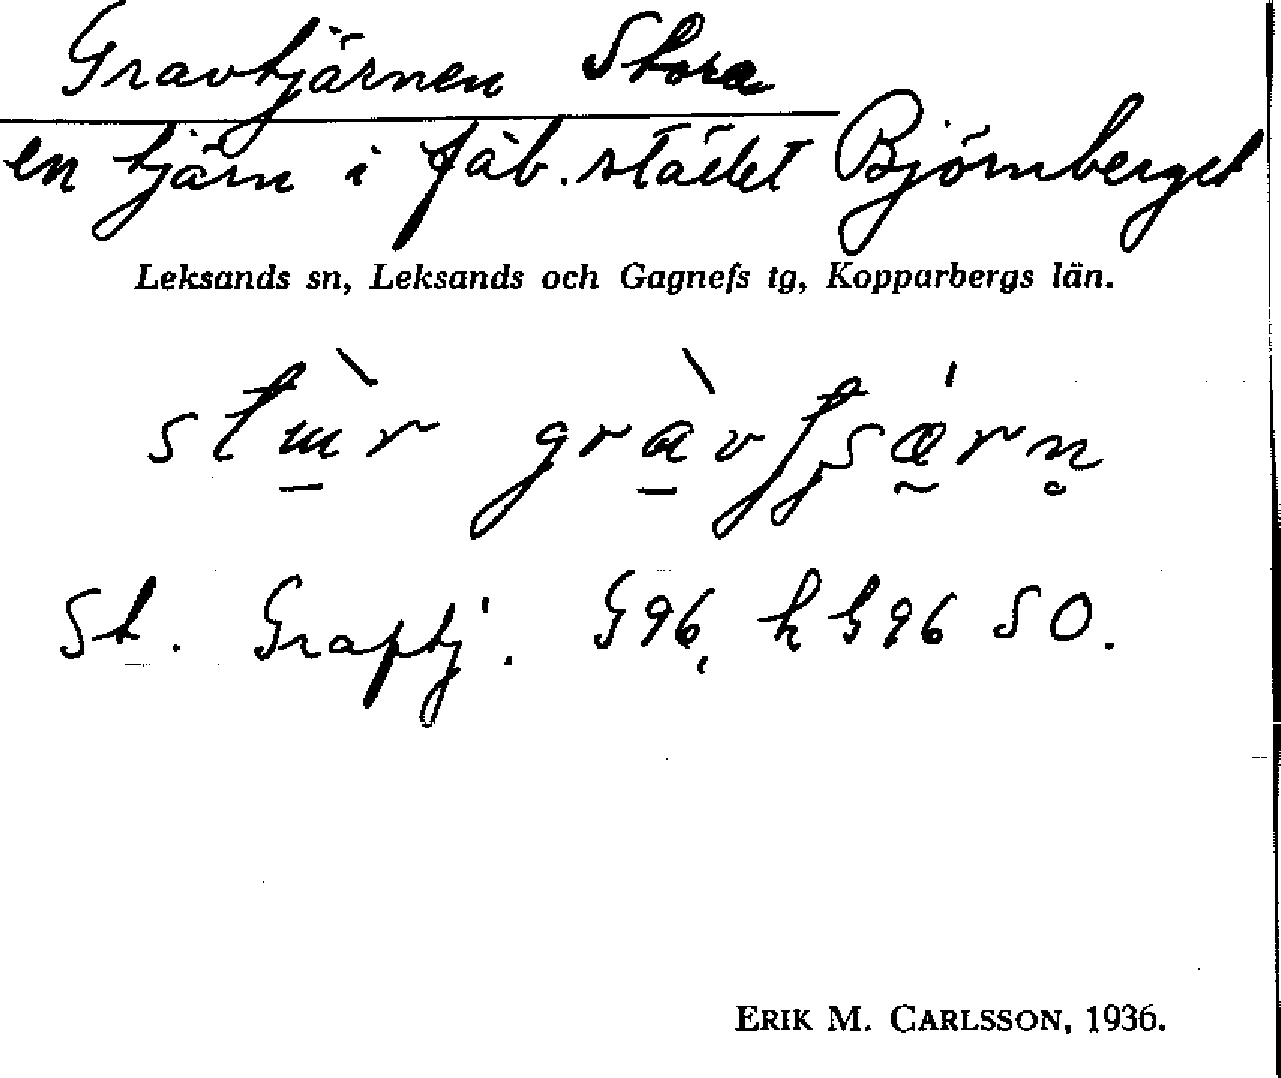 Gravtjärnen Stora
en tjärn i fäb. städet Björnberget
Leksands sn, Leksands och Gagnefs tg, Kopparbergs län.
St. Graptj. G96, k G96 SO.
ERIK M. CARLSSON, 1936.